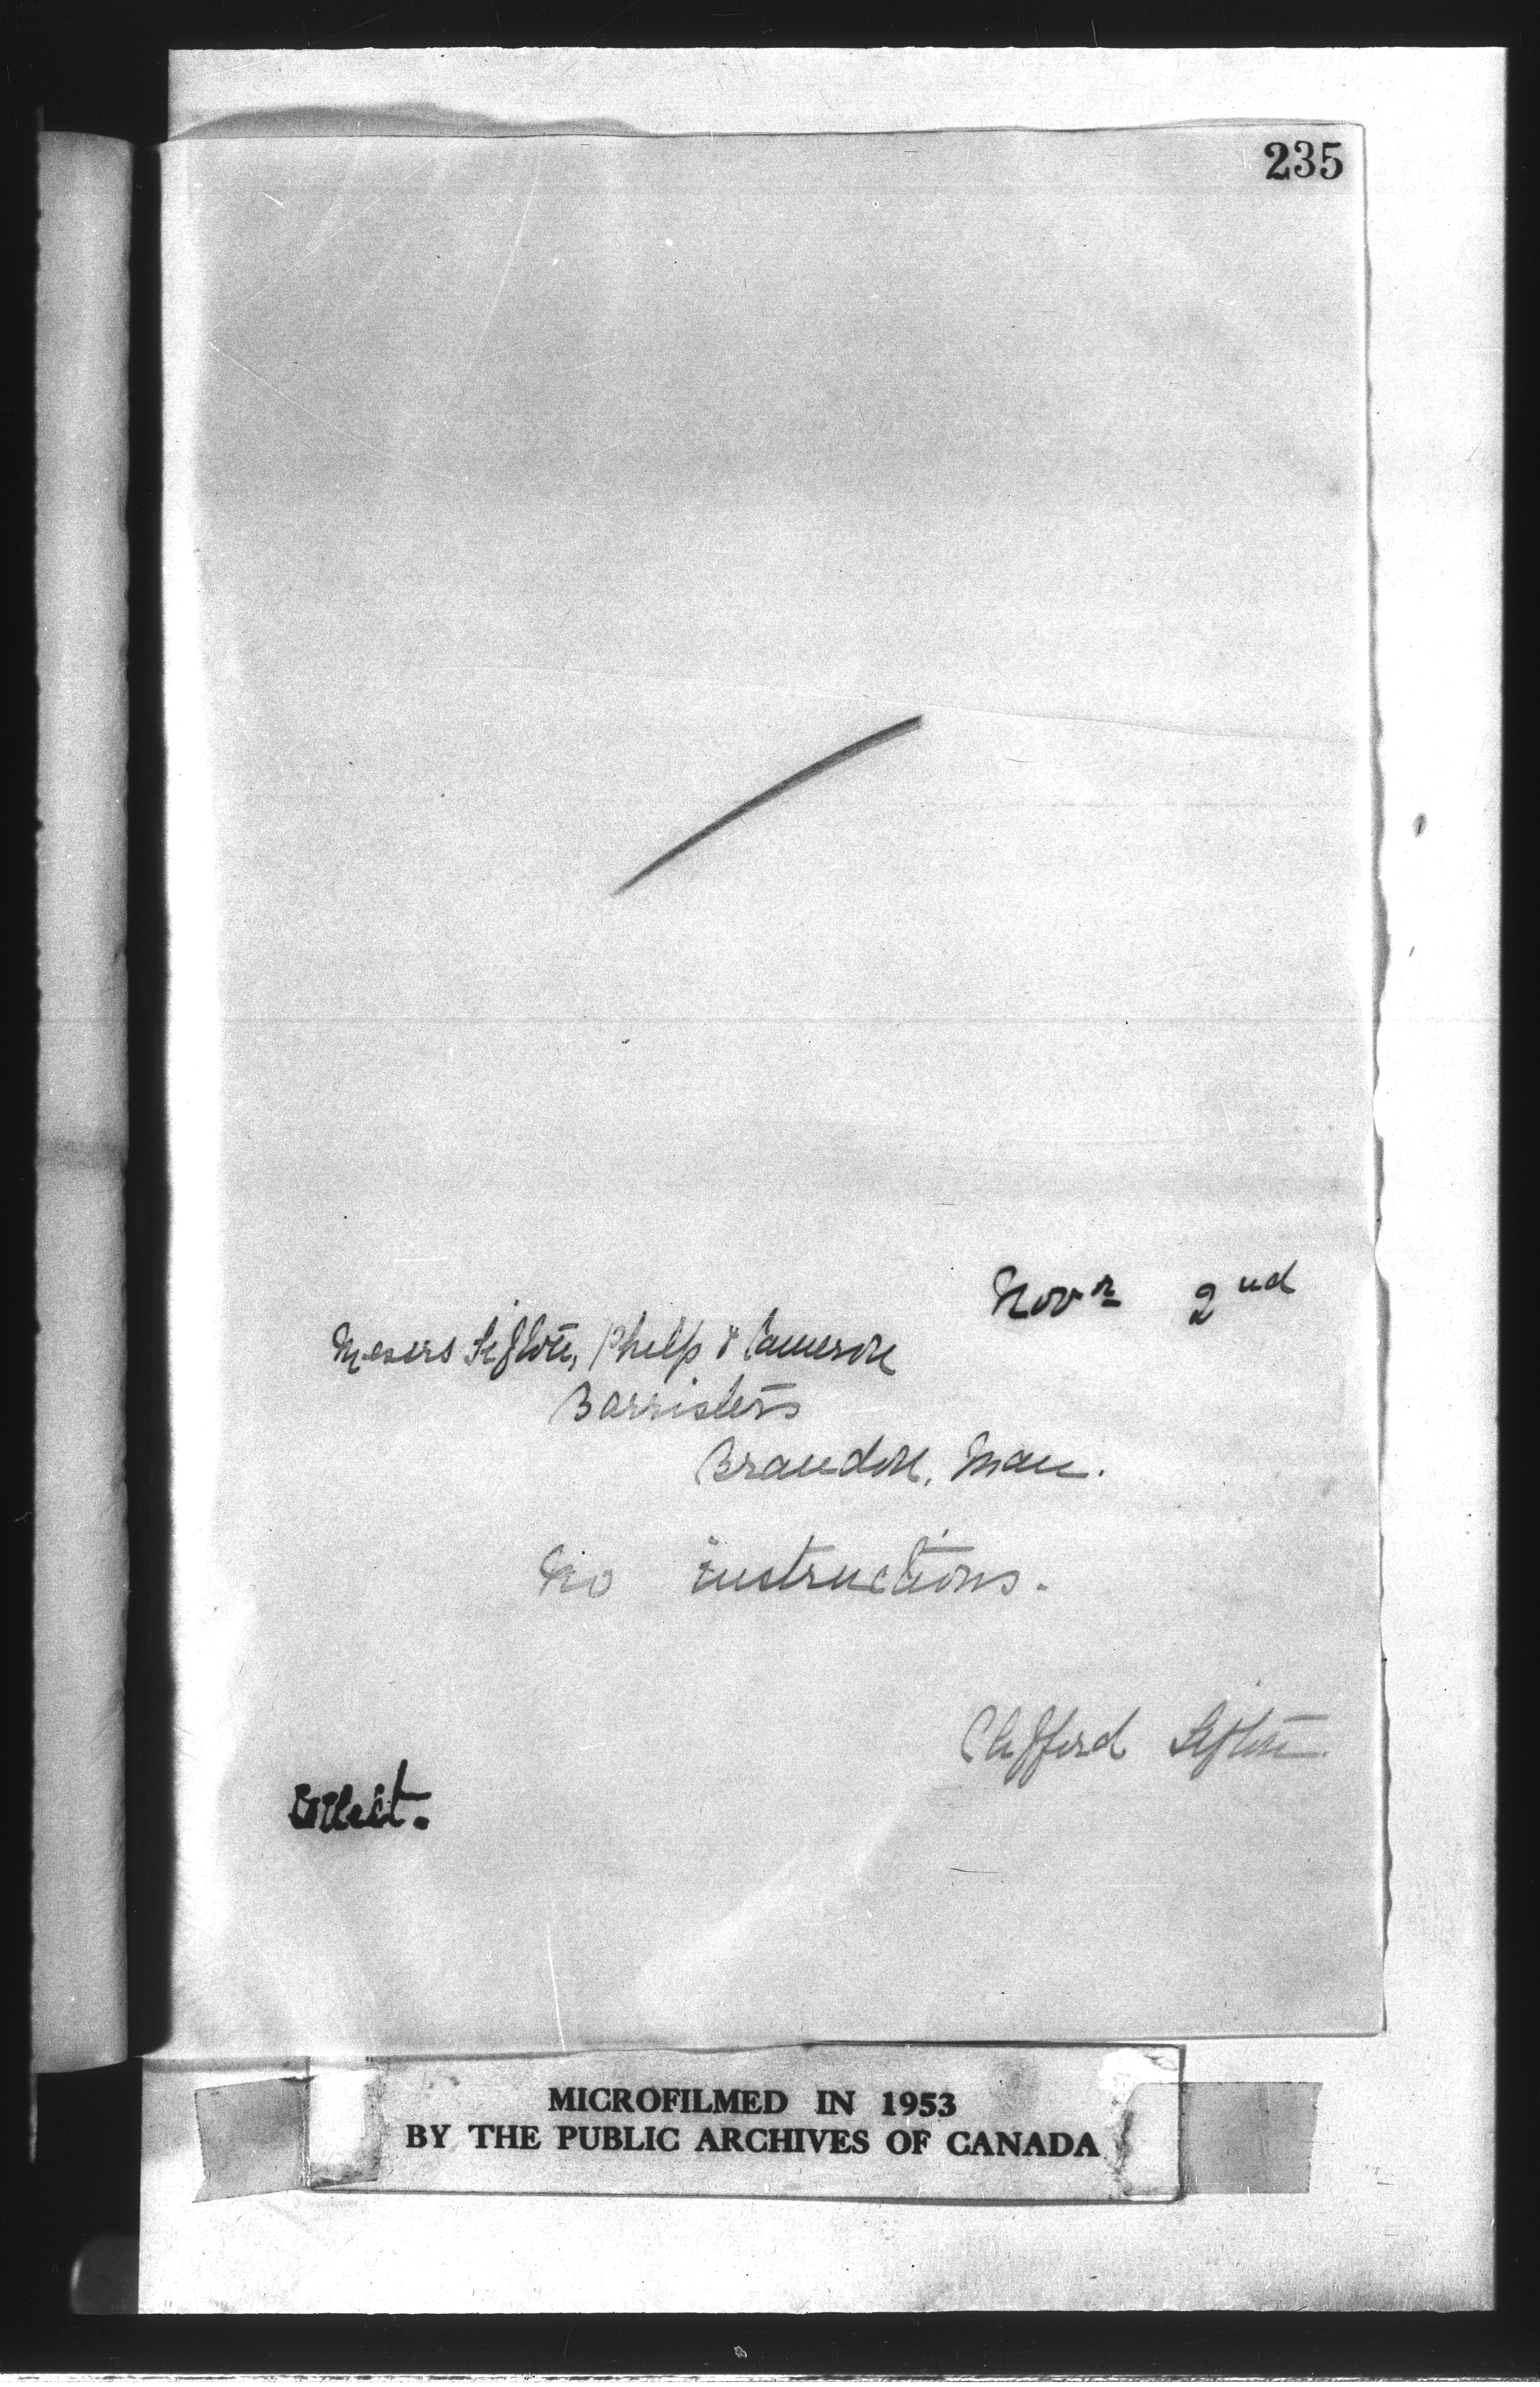 235
Novr 2nd
Messrs Sifton, Philp & Cameron
Barristers
Brandon, Man.
No instructions.
Clifford Sifton
Collect.
MICROFILMED IN 1953
BY THE PUBLIC ARCHIVES OF CANADA